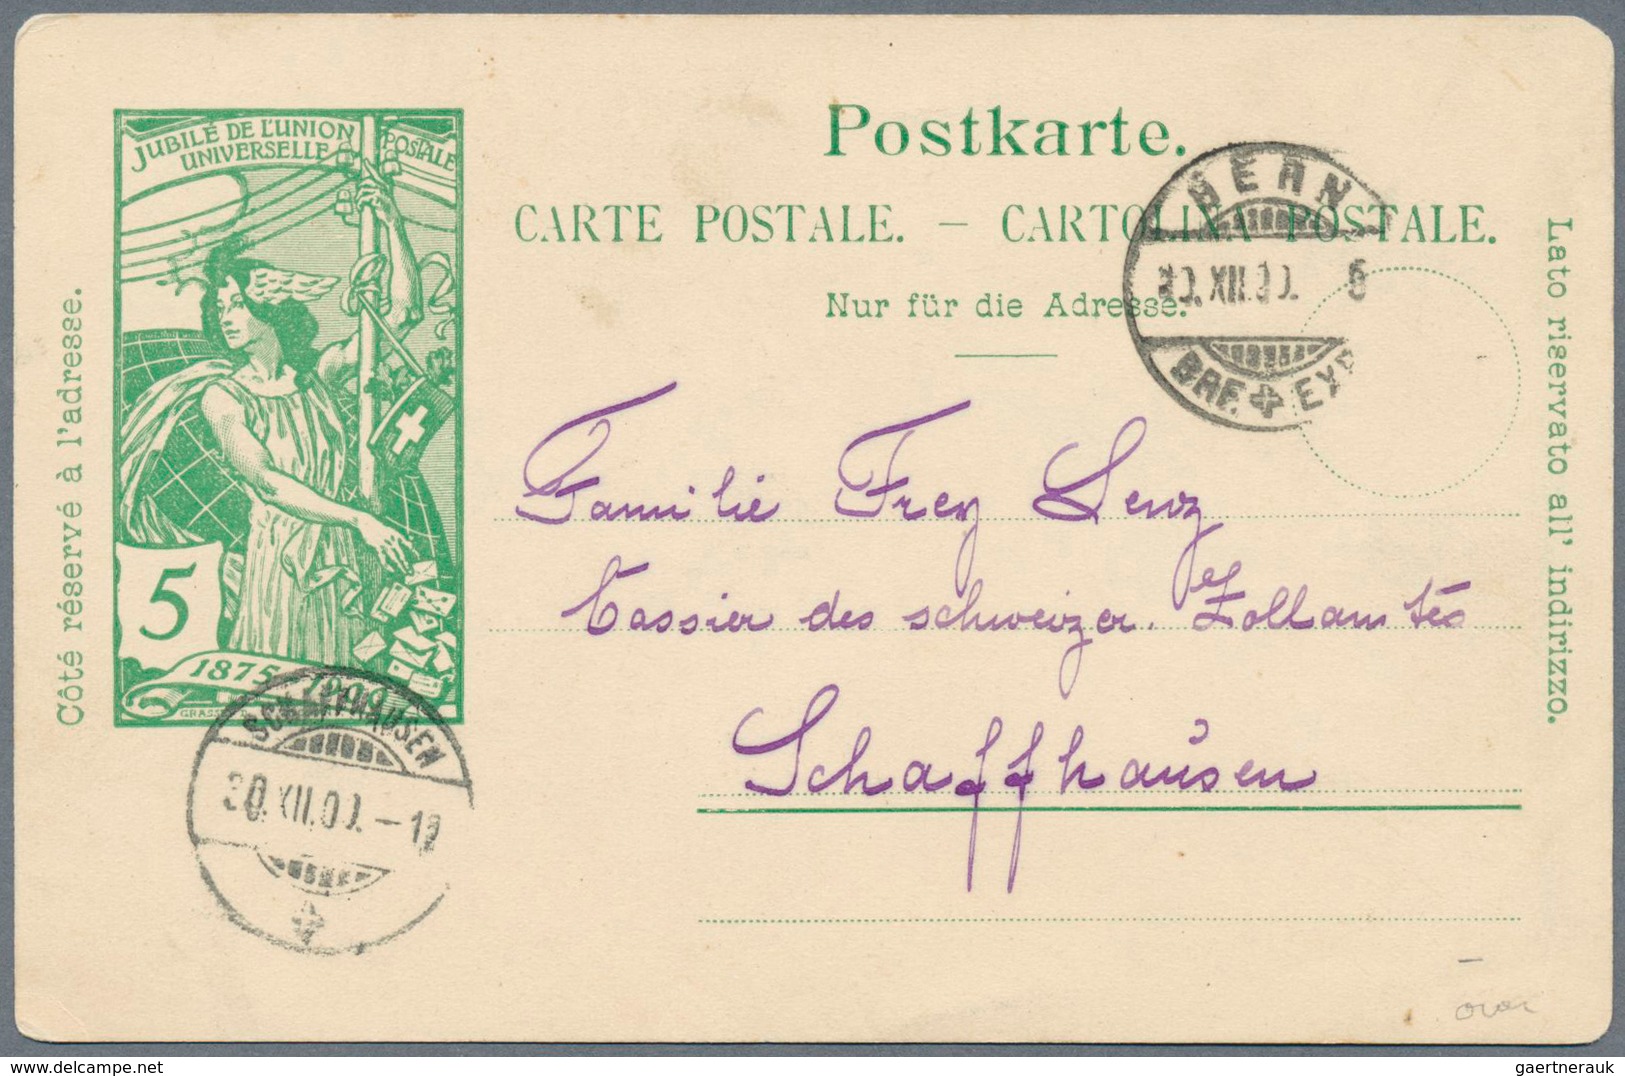 JUBILÉ DE L'UNION POSTALE
UNIVERSELLE
5
1875 1900
GRASS
Côté réservé à l'adresse.
Postkarte.
CARTE POSTALE. — CARTOLINA POSTALE.
Nur für die Adresse.
Lato riservato all' indirizzo.
BERN
30.XII.00. 6
BRF. EXP
Familie Frey Lenz
Cassier des schweizer. Zollamtes
Schaffhausen
SCHAFFHAUSEN
30.XII.00.-12
gaertnerauk